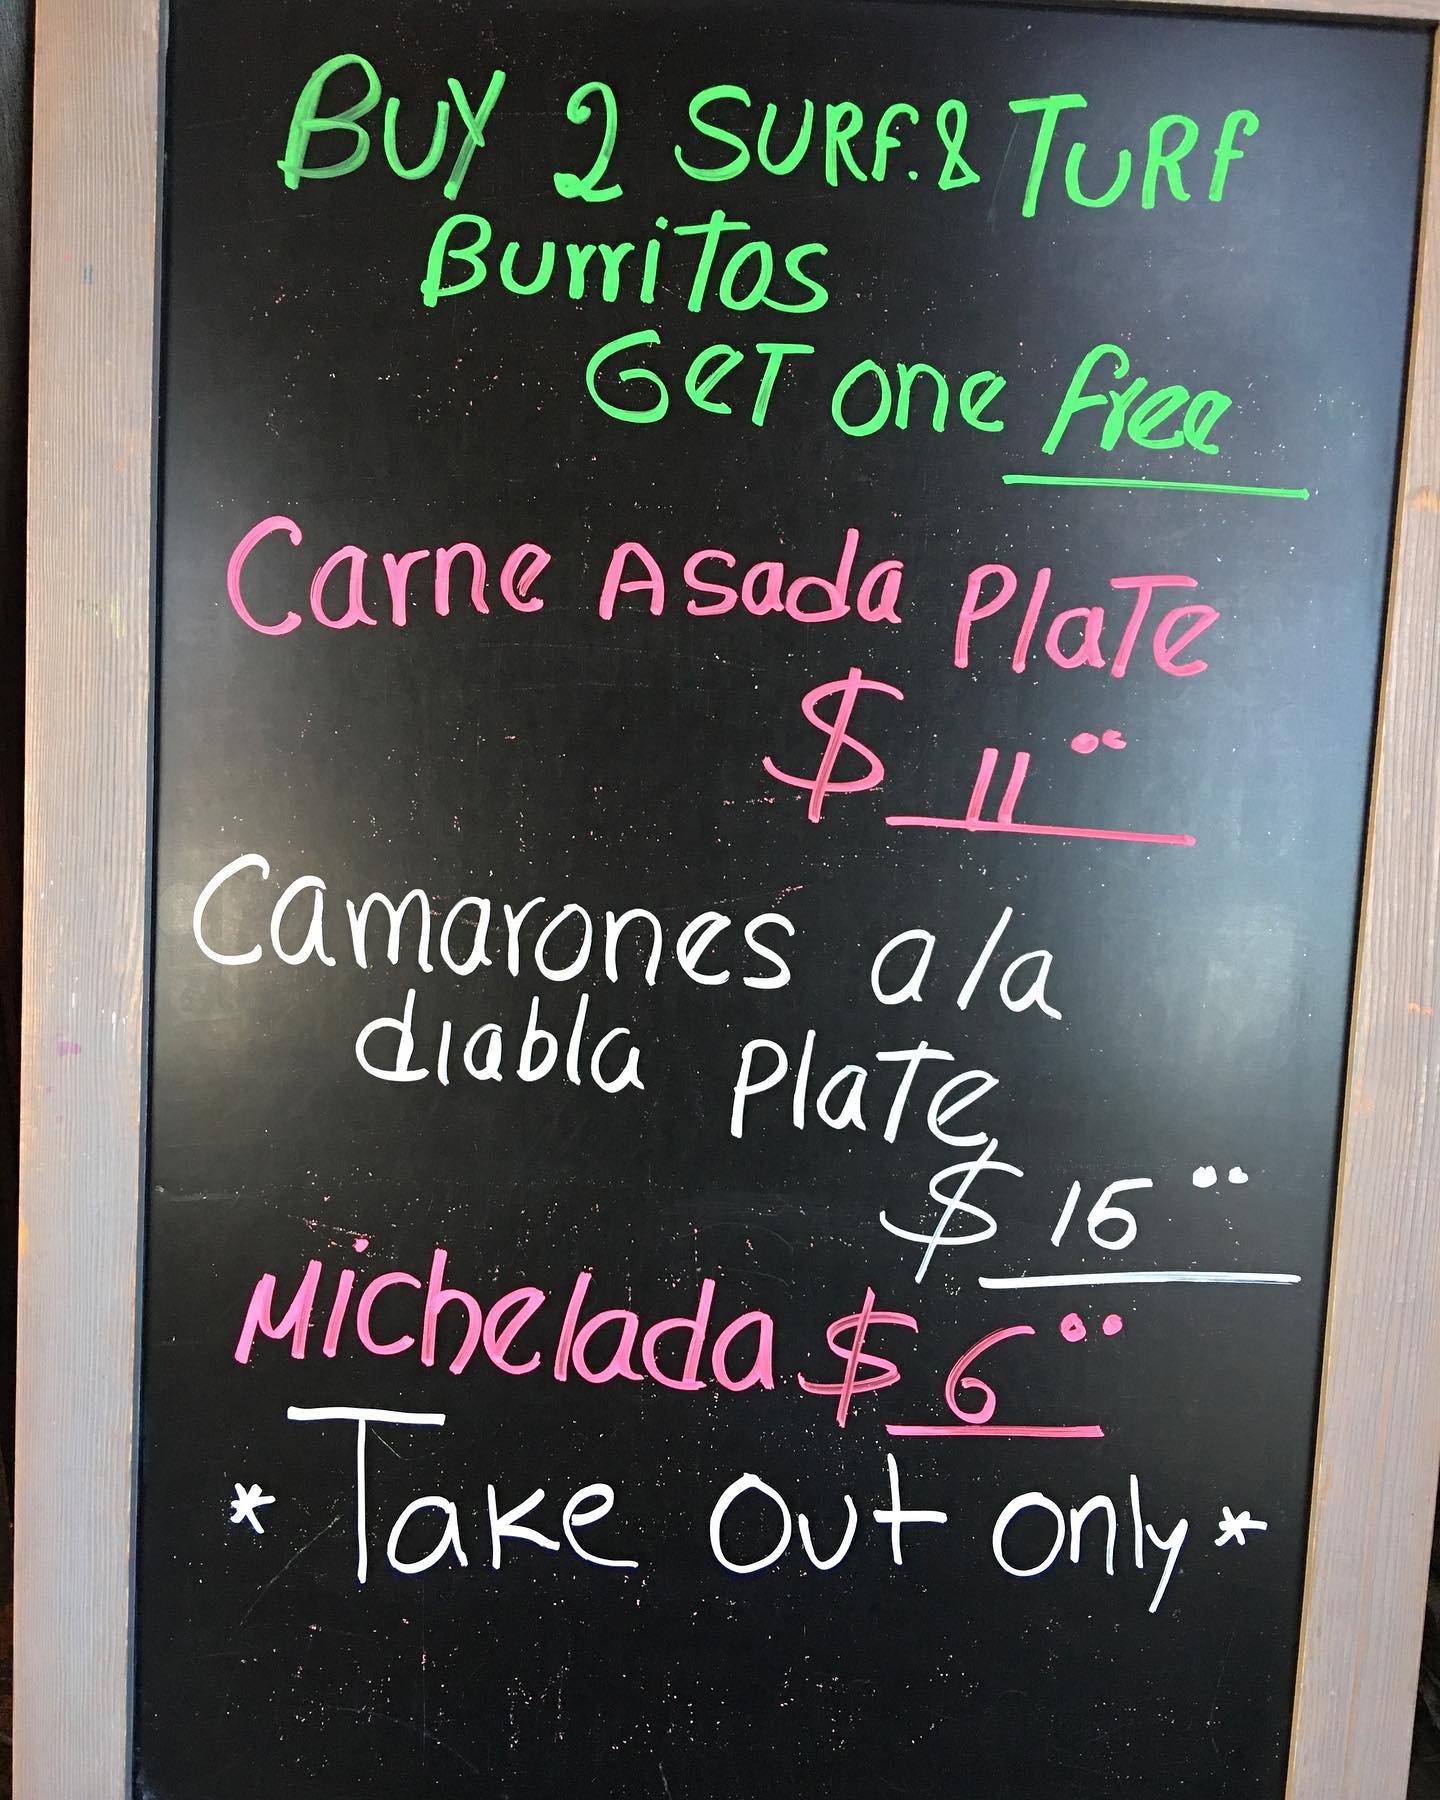 BUY 2 SURF. & TURF
BurriTos
GeT one free
Carne Asada PlaTe
$ 11 00
Camarones a la
diabla PlaTe
$ 15 00
Michelada $ 6 00
* Take Out only *